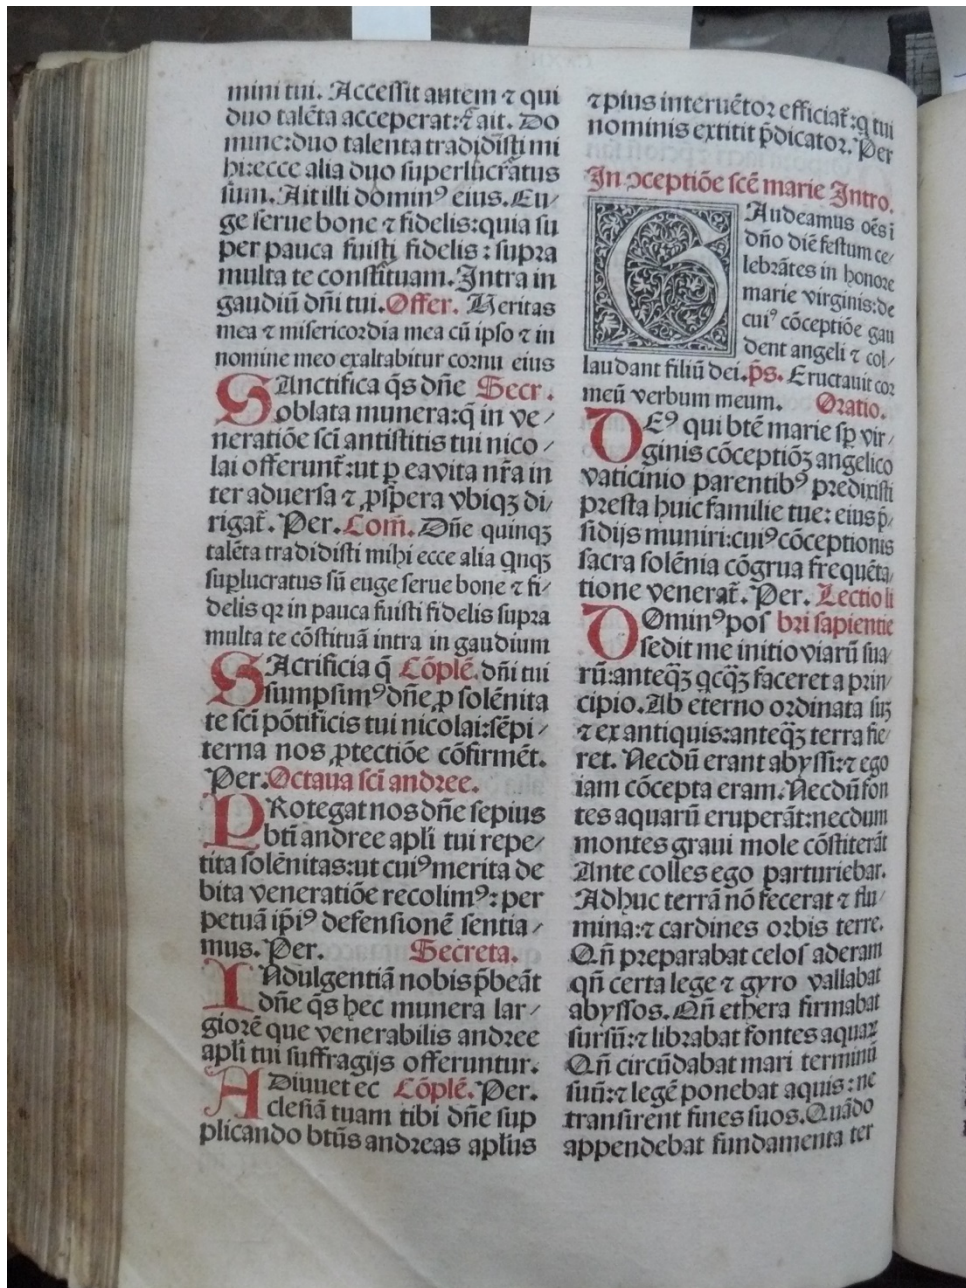 mini tui. Accessit autem ⁊ qui
duo talẽta acceperat: ⁊ ait. Do
mine: duo talenta tradidisti mi
hi: ecce alia duo superlucratus
sum. Ait illi dominꝰ eius. Eu/
ge serue bone ⁊ fidelis: quia su
per pauca fuisti fidelis: supra
multa te constituam. Intra in
gaudiũ dñi tui. Offer. Ueritas
mea ⁊ misericordia mea cũ ipso ⁊ in
nomine meo exaltabitur cornu eius
SAnctifica q̃s dñe Secr.
oblata munera: q̃ in ve/
neratiõe sc̃i antistitis tui nico/
lai offerunt̃: ut ꝑ ea vita nr̃a in
ter aduersa ⁊ ꝓspera vbiqꝫ di/
rigat̃. Per. Com̃. Dñe quinqꝫ
talẽta tradidisti mihi ecce alia qnqꝫ
suꝑlucratus sũ euge serue bone ⁊ fi/
delis qꝛ in pauca fuisti fidelis supra
multa te cõstituã intra in gaudium
SAcrificia q̃ Cõplẽ. dñi tui
sumpsimꝰ dñe, ꝓ solẽnita
te sc̃i põtificis tui nicolai: sẽpi/
terna nos ꝓtectiõe cõfirmẽt.
Per. Octaua sc̃i andree.
PRotegat nos dñe sepius
bt̃i andree apl̃i tui repe/
tita solẽnitas: ut cuiꝰ merita de
bita veneratiõe recolimꝰ: per
petuã ip̃iꝰ defensionẽ sentia/
mus. Per. Secreta.
INdulgentiã nobis p̃beãt
dñe q̃s hec munera lar/
giorẽ que venerabilis andree
apl̃i tui suffragijs offeruntur.
ADiuuet ec Cõplẽ. Per.
clesiã tuam tibi dñe sup
plicando bt̃us andreas apl̃us
⁊ pius interuẽtor efficiat̃: q tui
nominis extitit p̃dicator. Per
In ↄceptiõe scẽ marie Intro.
GAudeamus oẽs i
dño diẽ festum ce/
lebrãtes in honore
marie virginis: de
cuiꝰ cõceptiõe gau
dent angeli ⁊ col/
laudant filiũ dei. p̃s. Eructauit cor
meũ verbum meum. Oratio.
DEꝰ qui btẽ marie sꝑ vir/
ginis cõceptiõꝫ angelico
vaticinio parentibꝰ predixisti
presta huic familie tue: eius p̃/
sidijs muniri: cuiꝰ cõceptionis
sacra solẽnia cõgrua frequẽta/
tione venerat̃. Per. Lectio li
Dominꝰ pos bri sapientie
sedit me initio viarũ sua
rũ: anteq̃ꝫ qcq̃ꝫ faceret a prin/
cipio. Ab eterno ordinata suꝫ
⁊ ex antiquis: anteq̃ꝫ terra fie
ret. Necdũ erant abyssi: ⁊ ego
iam cõcepta eram. Necdũ fon
tes aquarũ eruperãt: necdum
montes graui mole cõstiterãt
Ante colles ego parturiebar.
Adhuc terrã nõ fecerat ⁊ flu/
mina: ⁊ cardines orbis terre.
Qñ preparabat celos aderam
qñ certa lege ⁊ gyro vallabat
abyssos. Qñ ethera firmabat
sursũ: ⁊ librabat fontes aquaꝝ
Qñ circũdabat mari terminũ
suũ: ⁊ legẽ ponebat aquis: ne
transirent fines suos. Quãdo
appendebat fundamenta ter